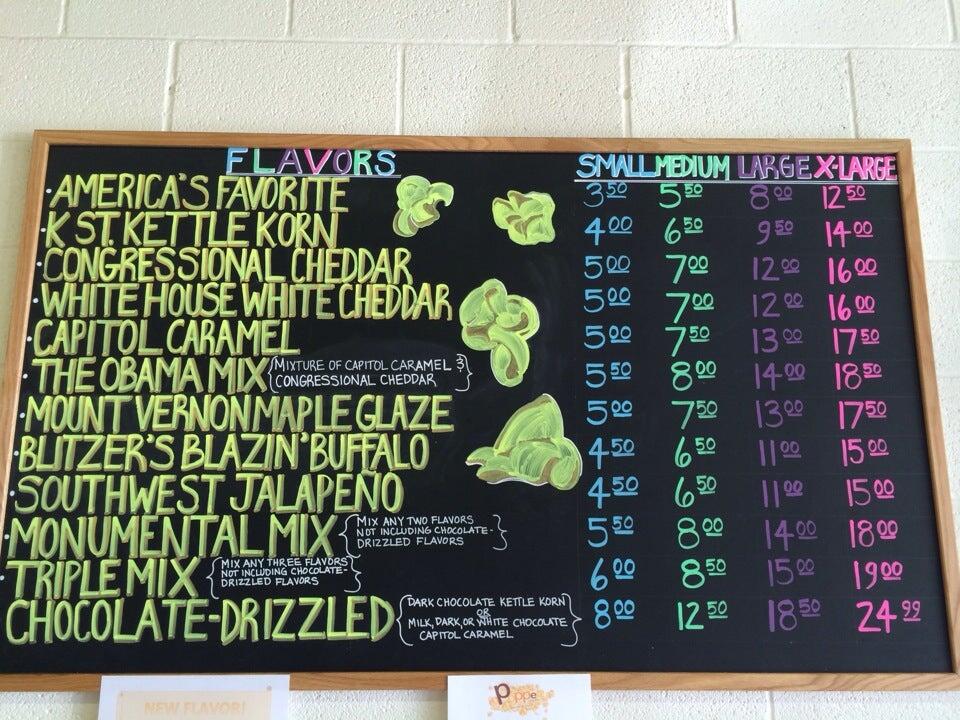 FLAVORS SMALL MEDIUM LARGE X-LARGE
AMERICA'S FAVORITE 3 50 5 50 8 00 12 50
K ST. KETTLE KORN 4 00 6 50 9 50 14 00
CONGRESSIONAL CHEDDAR 5 00 7 00 12 00 16 00
WHITE HOUSE WHITE CHEDDAR 5 00 7 00 12 00 16 00
CAPITOL CARAMEL 5 00 7 50 13 00 17 50
THE OBAMA MIX (MIXTURE OF CAPITOL CARAMEL &
CONGRESSIONAL CHEDDAR) 5 50 8 00 14 00 18 50
MOUNT VERNON MAPLE GLAZE 5 00 7 50 13 00 17 50
BLITZER'S BLAZIN' BUFFALO 4 50 6 50 11 00 15 00
SOUTHWEST JALAPEÑO 4 50 6 50 11 00 15 00
MONUMENTAL MIX {MIX ANY TWO FLAVORS
NOT INCLUDING CHOCOLATE-
DRIZZLED FLAVORS} 5 50 8 00 14 00 18 00
TRIPLE MIX {MIX ANY THREE FLAVORS
NOT INCLUDING CHOCOLATE-
DRIZZLED FLAVORS} 6 00 8 50 15 00 19 00
CHOCOLATE-DRIZZLED {DARK CHOCOLATE KETTLE KORN
OR
MILK, DARK, OR WHITE CHOCOLATE
CAPITOL CARAMEL} 8 00 12 50 18 50 24 99
NEW FLAVOR!